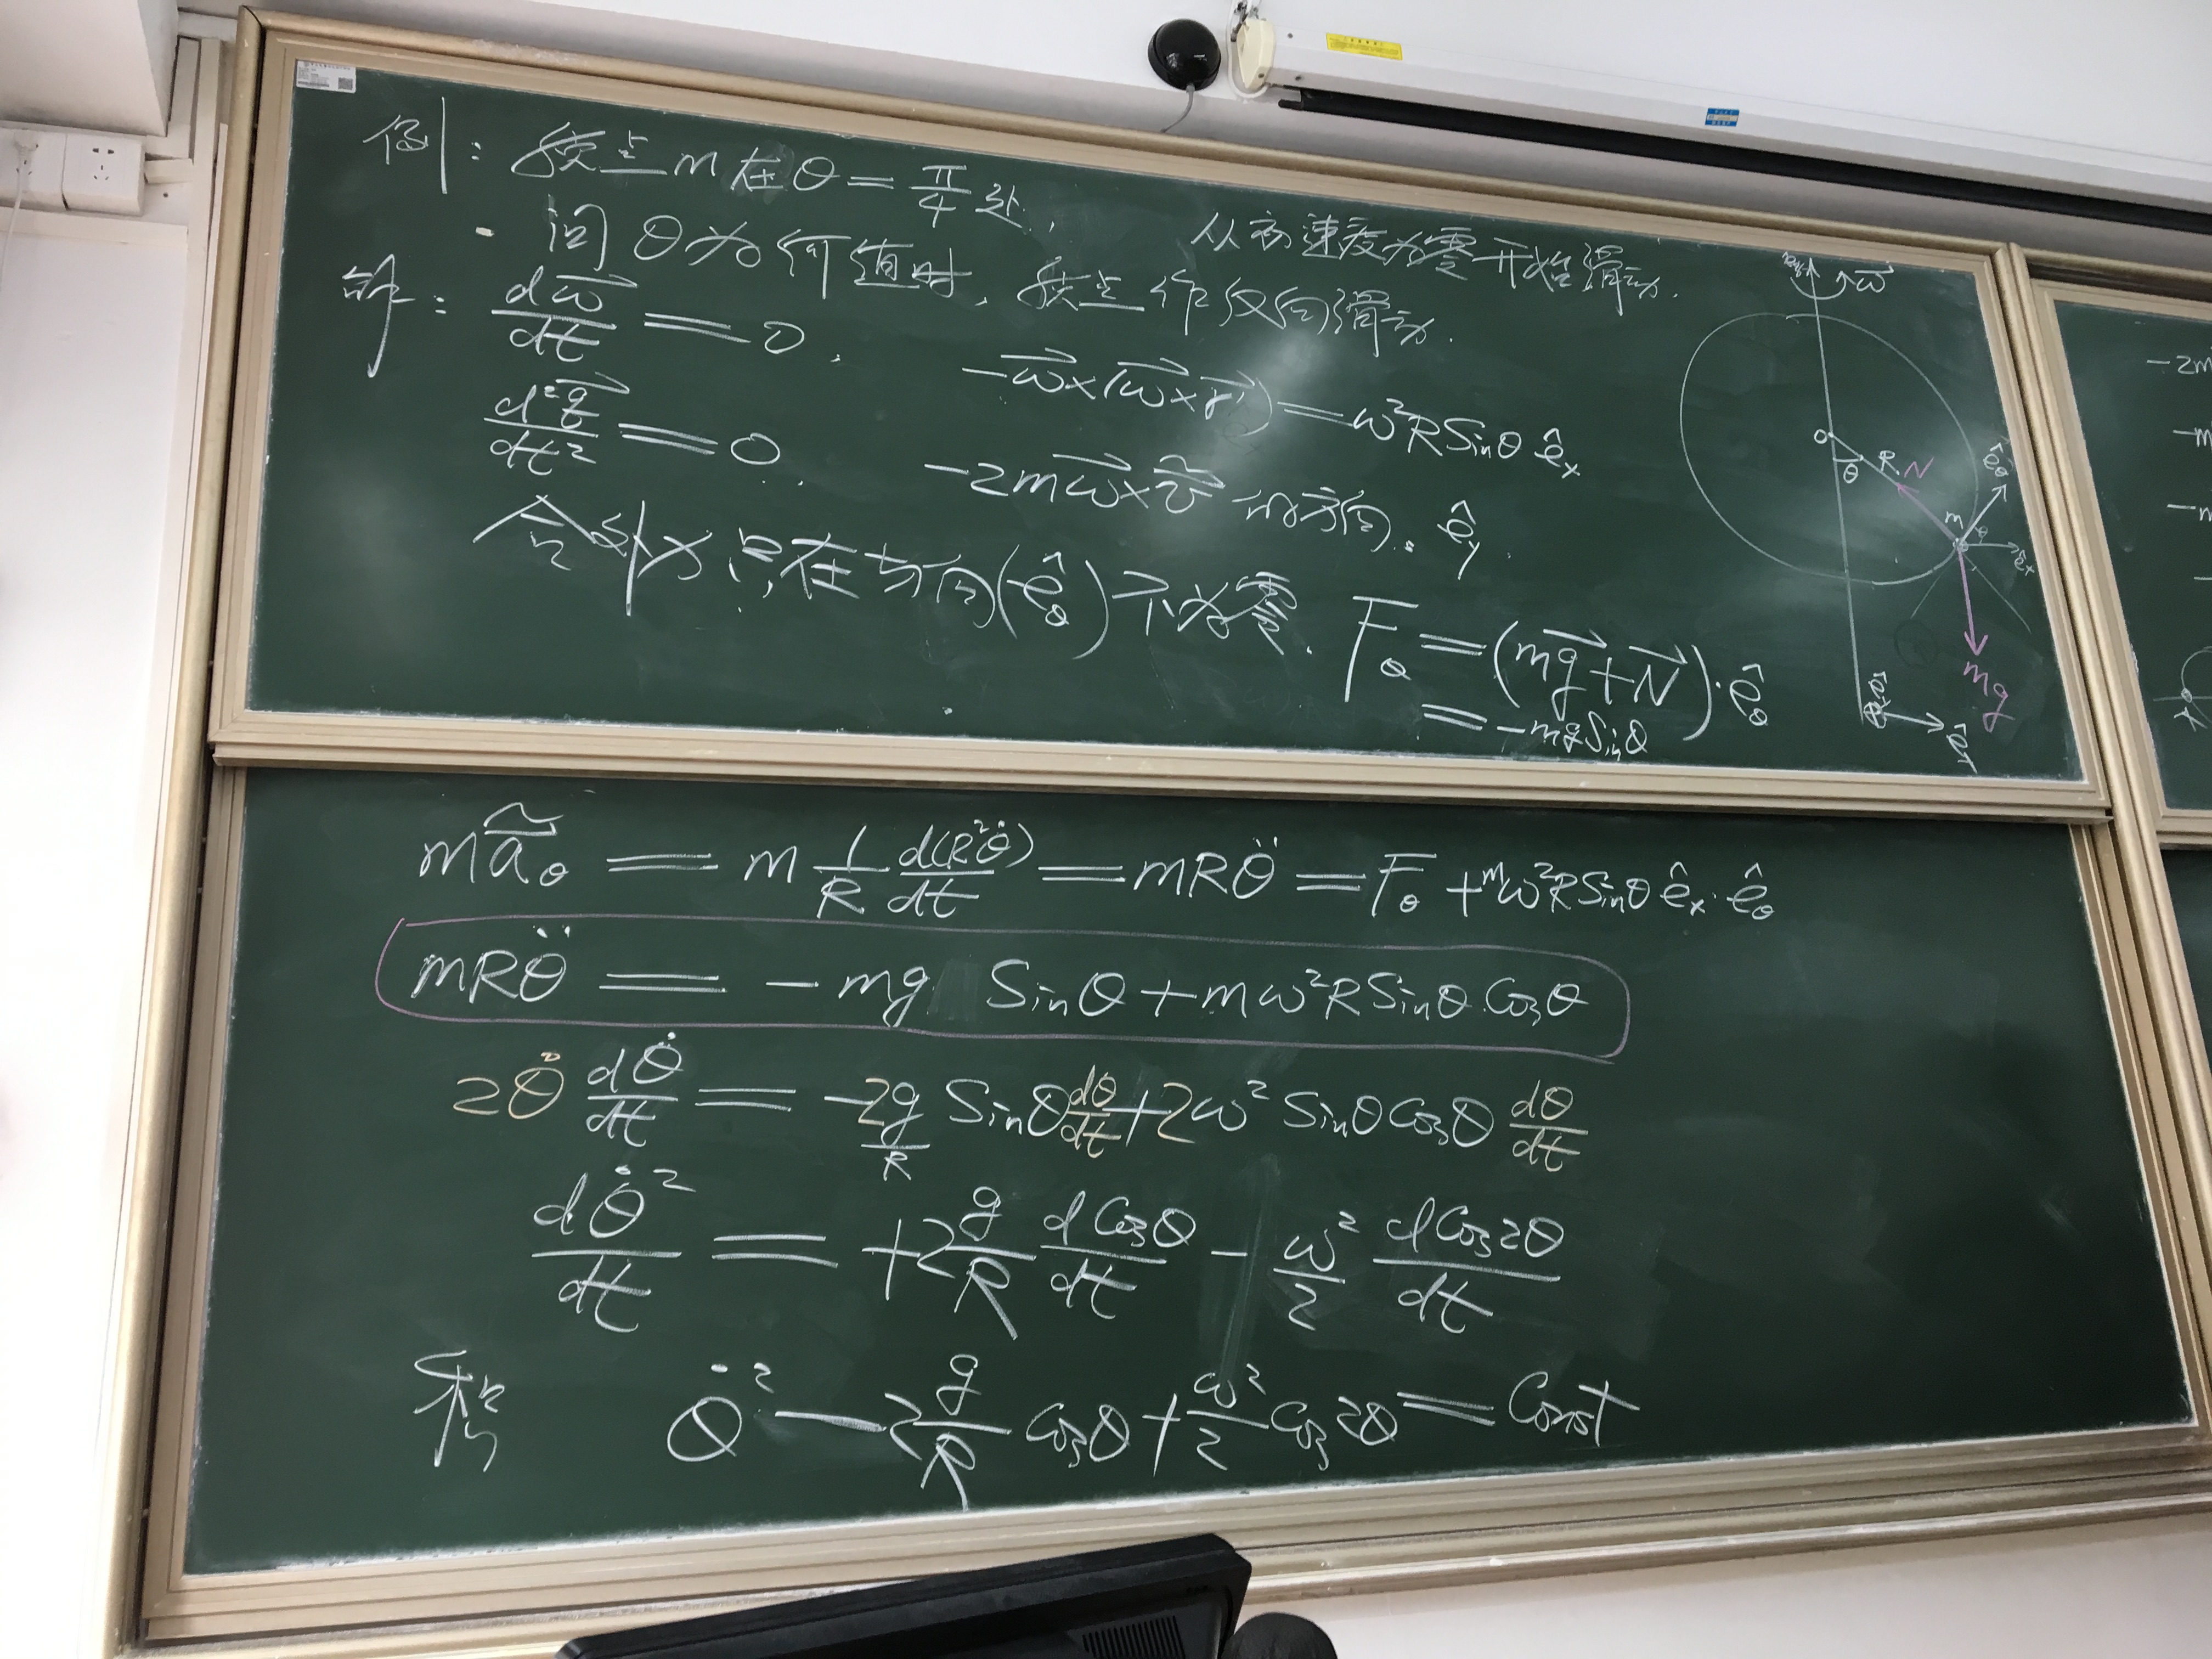 例: 质点m在θ=π/4处, 从初速度为零开始滑动.
问θ为何值时, 质点作反向滑动.
解: dω⃗/dt = 0, -ω⃗×(ω⃗×r⃗) = ω²R Sinθ ê_x
d²ξ⃗/dt² = 0. -2mω⃗×ṽ 的方向: ê_y.
合外力只在方向(ê_θ)不为零. F_θ = (mg⃗+N⃗)·ê_θ
= -mg Sinθ
ω⃗
O
θ
R
N
m
ê_θ
ê_x
mg
mã_θ = m 1/R d(R²θ̇)/dt = mRθ̈ = F_θ + mω²R Sinθ ê_x·ê_θ
mRθ̈ = -mg Sinθ + mω²R Sinθ Cosθ
2θ̇ dθ̇/dt = -2g/R Sinθ dθ/dt + 2ω² Sinθ Cosθ dθ/dt
dθ̇²/dt = +2 g/R dCosθ/dt - ω²/2 dCos2θ/dt
θ̇² - 2 g/R Cosθ + ω²/2 Cos2θ = Const
-2m
-m
-m